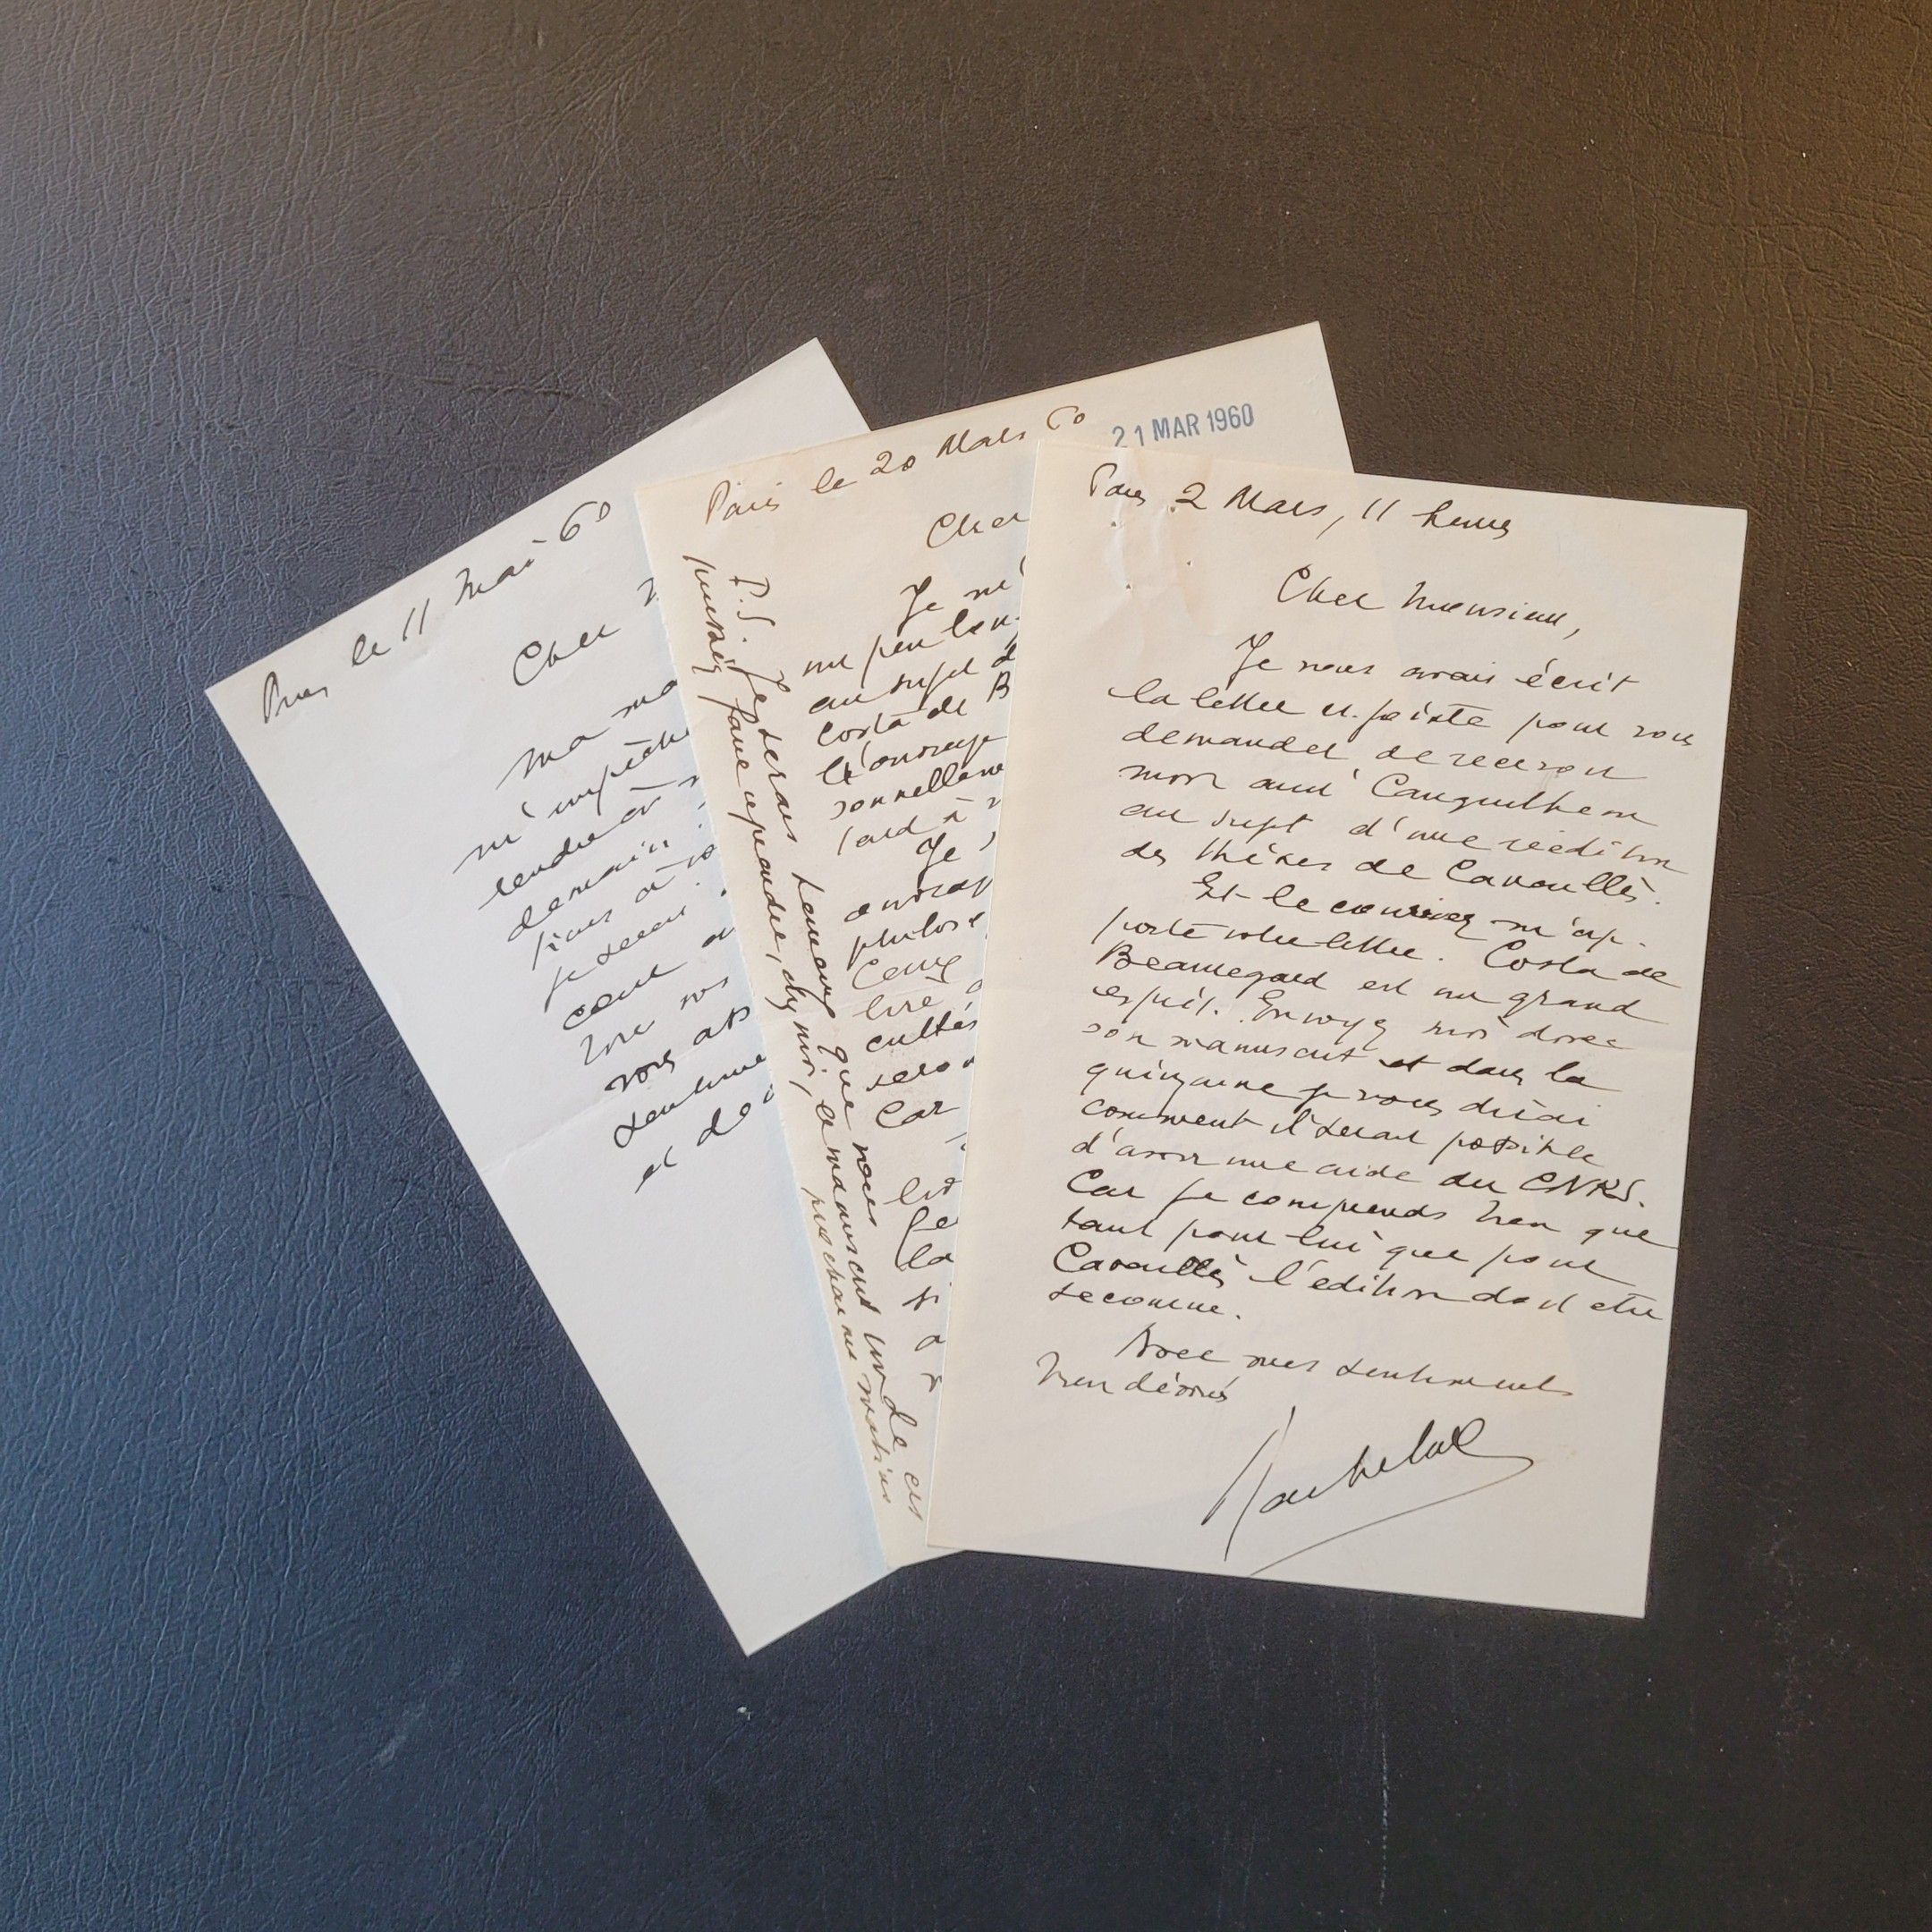 Paris le 11 Mai 60
Cher
Ma
m'empêche
rendre à
demain.
je serai
cœur
vos
vous
et de
Paris le 20 Mars 60
21 MAR 1960
Cher
Je m'
un peu
au sujet d
Costa de B
l'ouvrage
sonnellem
tard à
Je
ouvrage
philos
lire
cultés
sera
Car
la
P.S. Je serais heureux que nous
puissiez faire reprendre, chez moi, le manuscrit un de ces
prochaines matines
Paris 2 Mars, 11 heures
Cher Monsieur,
Je vous avais écrit
la lettre ci-jointe pour vous
demander de recevoir
mon ami Canguilhem
au sujet d'une réédition
des thèses de Cavaillès.
Et le courrier m'ap-
porte votre lettre. Costa de
Beauregard est un grand
esprit. Envoyez moi donc
son manuscrit et dans la
quinzaine je vous dirai
comment il serait possible
d'avoir une aide du CNRS.
Car je comprends bien que
tant pour lui que pour
Cavaillès l'édition doit être
secourue.
Avec mes sentiments
bien dévoués
Bachelard